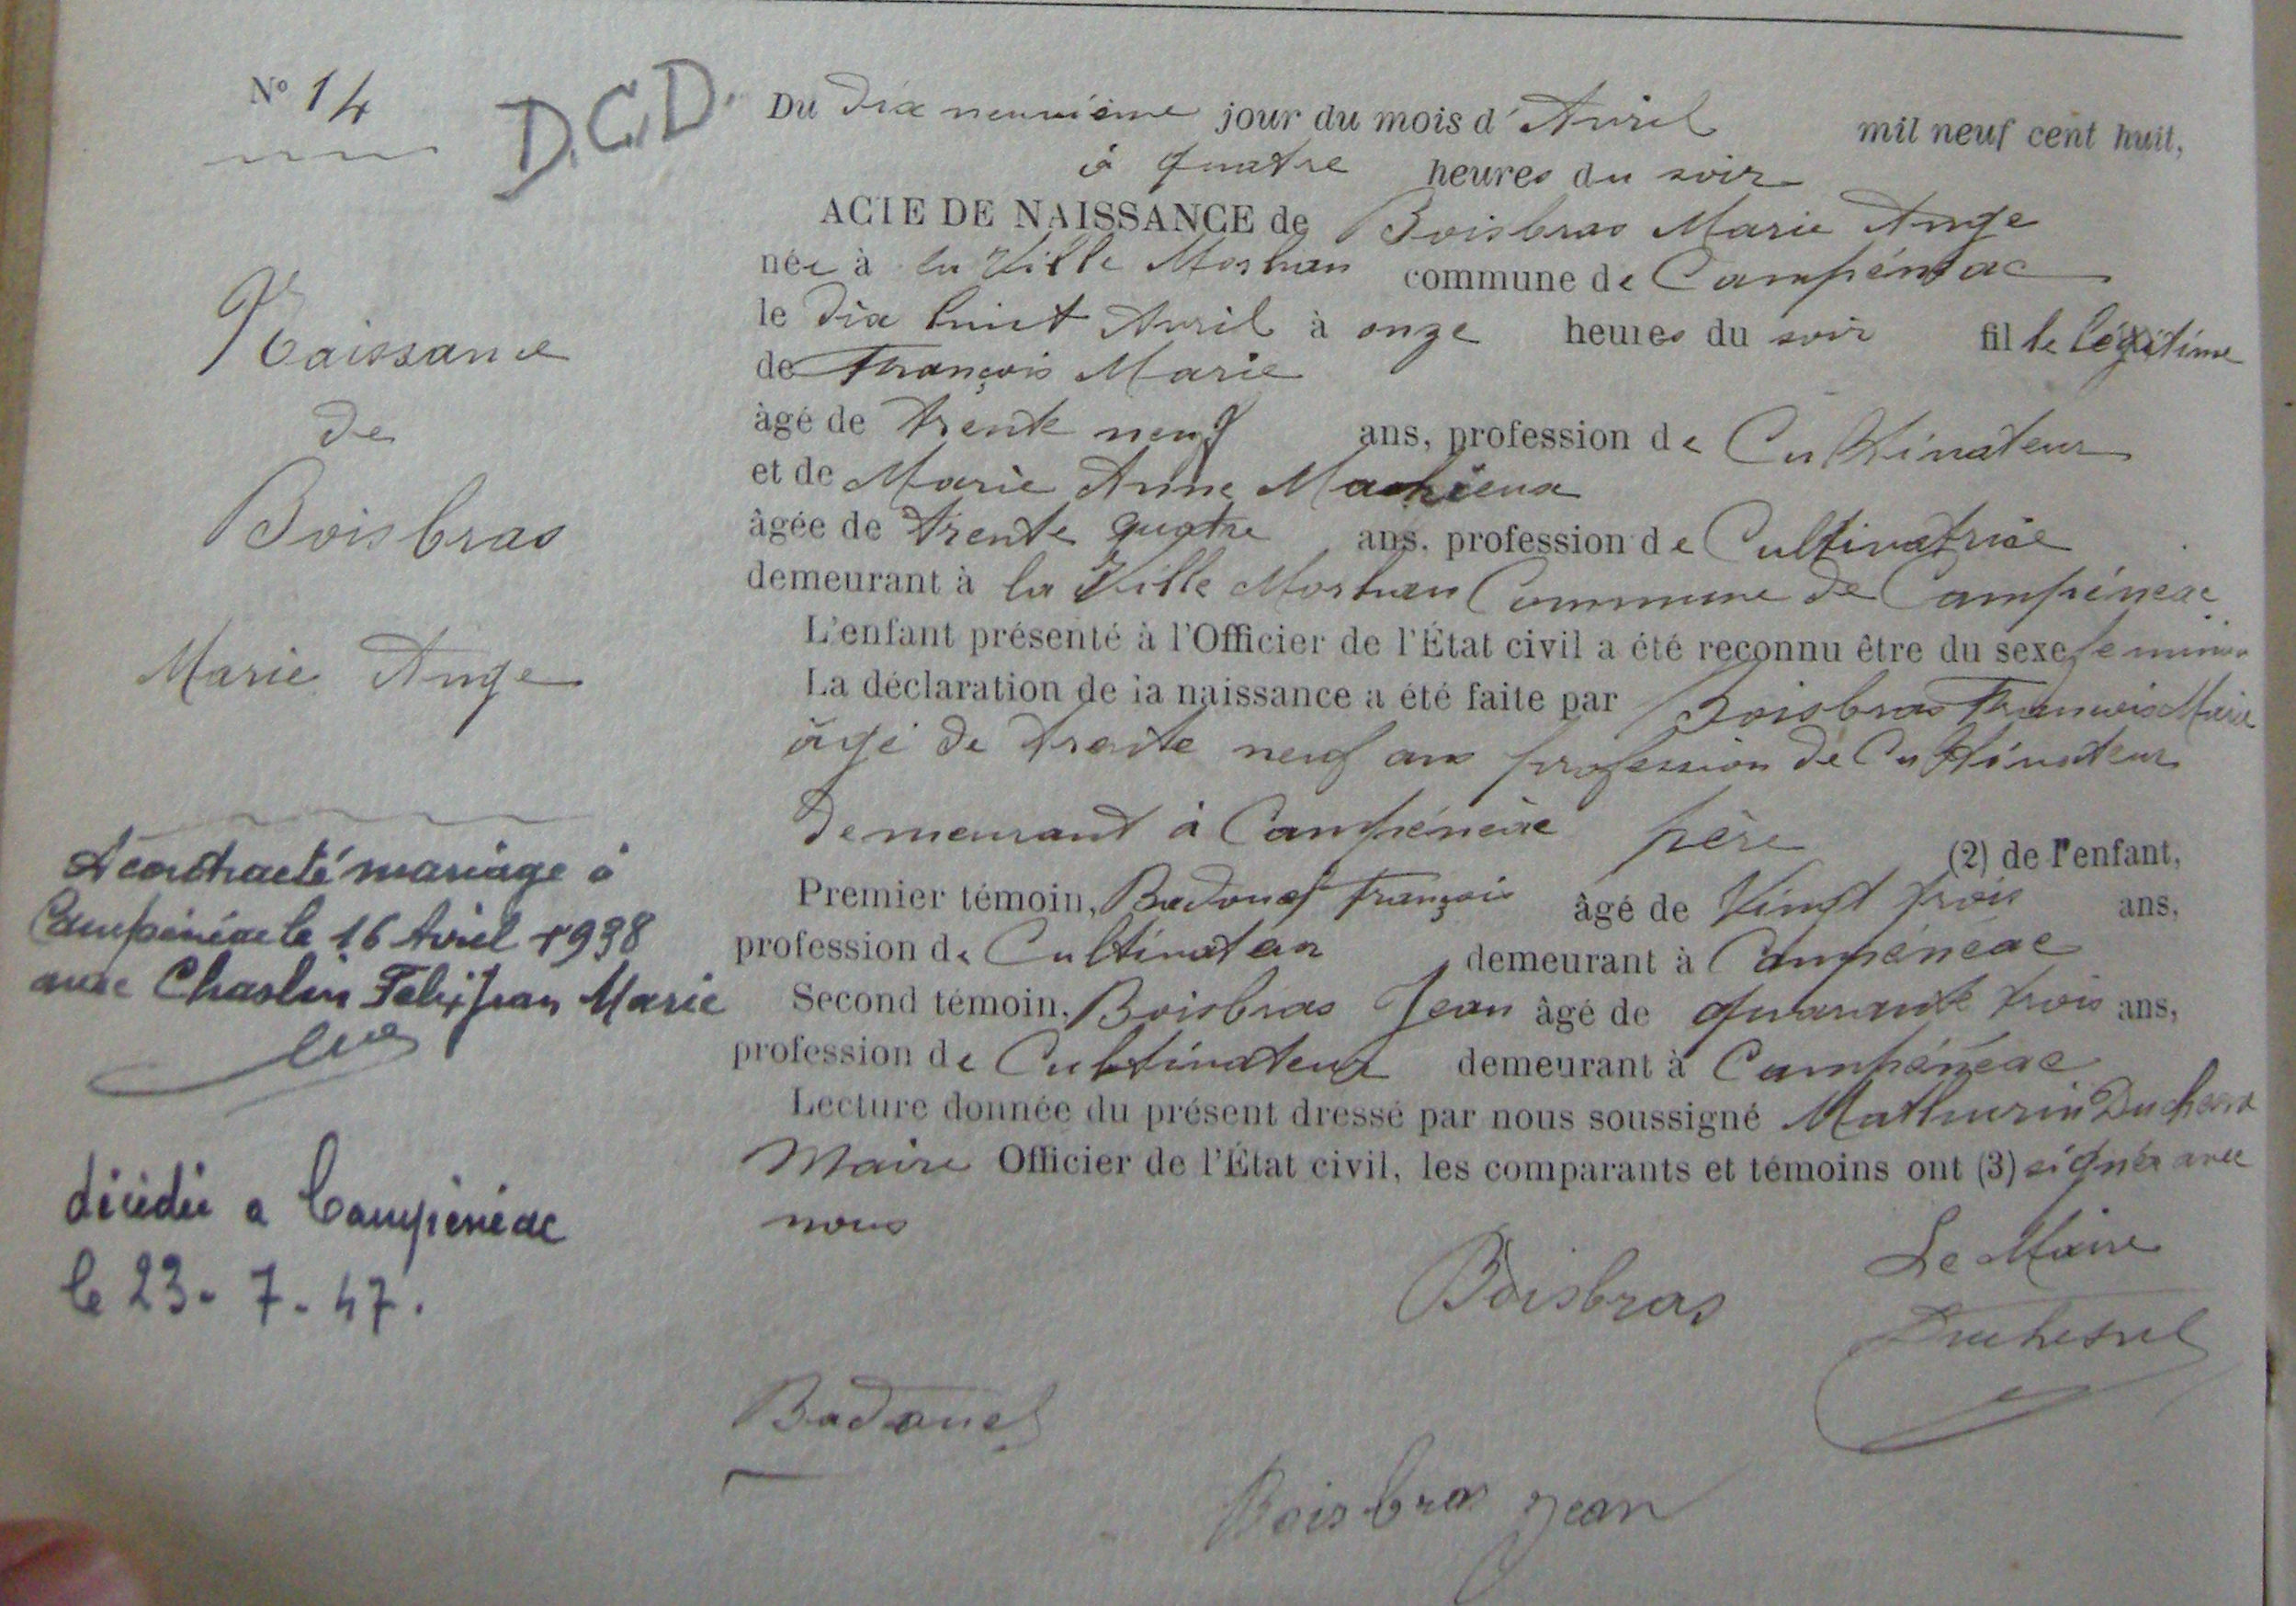 N° 14
D.C.D.
Naissance
de
Boisbras
Marie Ange
A contracté mariage à
Campénéac le 16 Avril 1938
avec Chaslin Felix Jean Marie
décédée a Campénéac
le 23-7-47.
Du dix neuvième jour du mois d'Avril mil neuf cent huit,
à quatre heures du soir
ACTE DE NAISSANCE de Boisbras Marie Ange
née à la Ville commune de Campénéac
le dix huit Avril à onze heures du soir fille légitime
de François Marie
âgé de trente neuf ans, profession de Cultivateur
et de Marie Anne
âgée de trente quatre ans, profession de Cultivatrice
demeurant à la Ville Commune de Campénéac
L'enfant présenté à l'Officier de l'État civil a été reconnu être du sexe féminin
La déclaration de la naissance a été faite par Boisbras François Marie
âgé de trente neuf ans profession de Cultivateur
demeurant à Campénéac père (2) de l'enfant,
Premier témoin, Badouel François âgé de Vingt trois ans,
profession de Cultivateur demeurant à Campénéac
Second témoin, Boisbras Jean âgé de quarante trois ans,
profession de Cultivateur demeurant à Campénéac
Lecture donnée du présent dressé par nous soussigné Mathurin
Maire Officier de l'État civil, les comparants et témoins ont (3) signé avec
nous
Boisbras
Le Maire
Duchesne
Badouel
Boisbras Jean